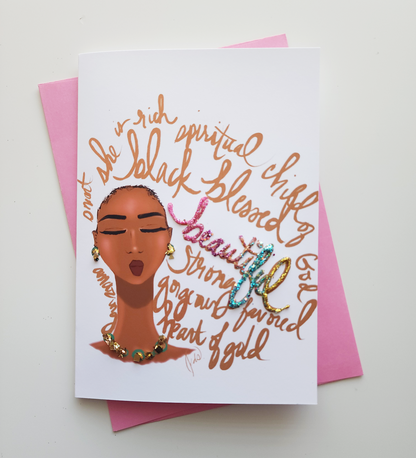 smart
she is rich
spiritual child of God
black blessed
beautiful
strong
gorgeous favored
heart of gold